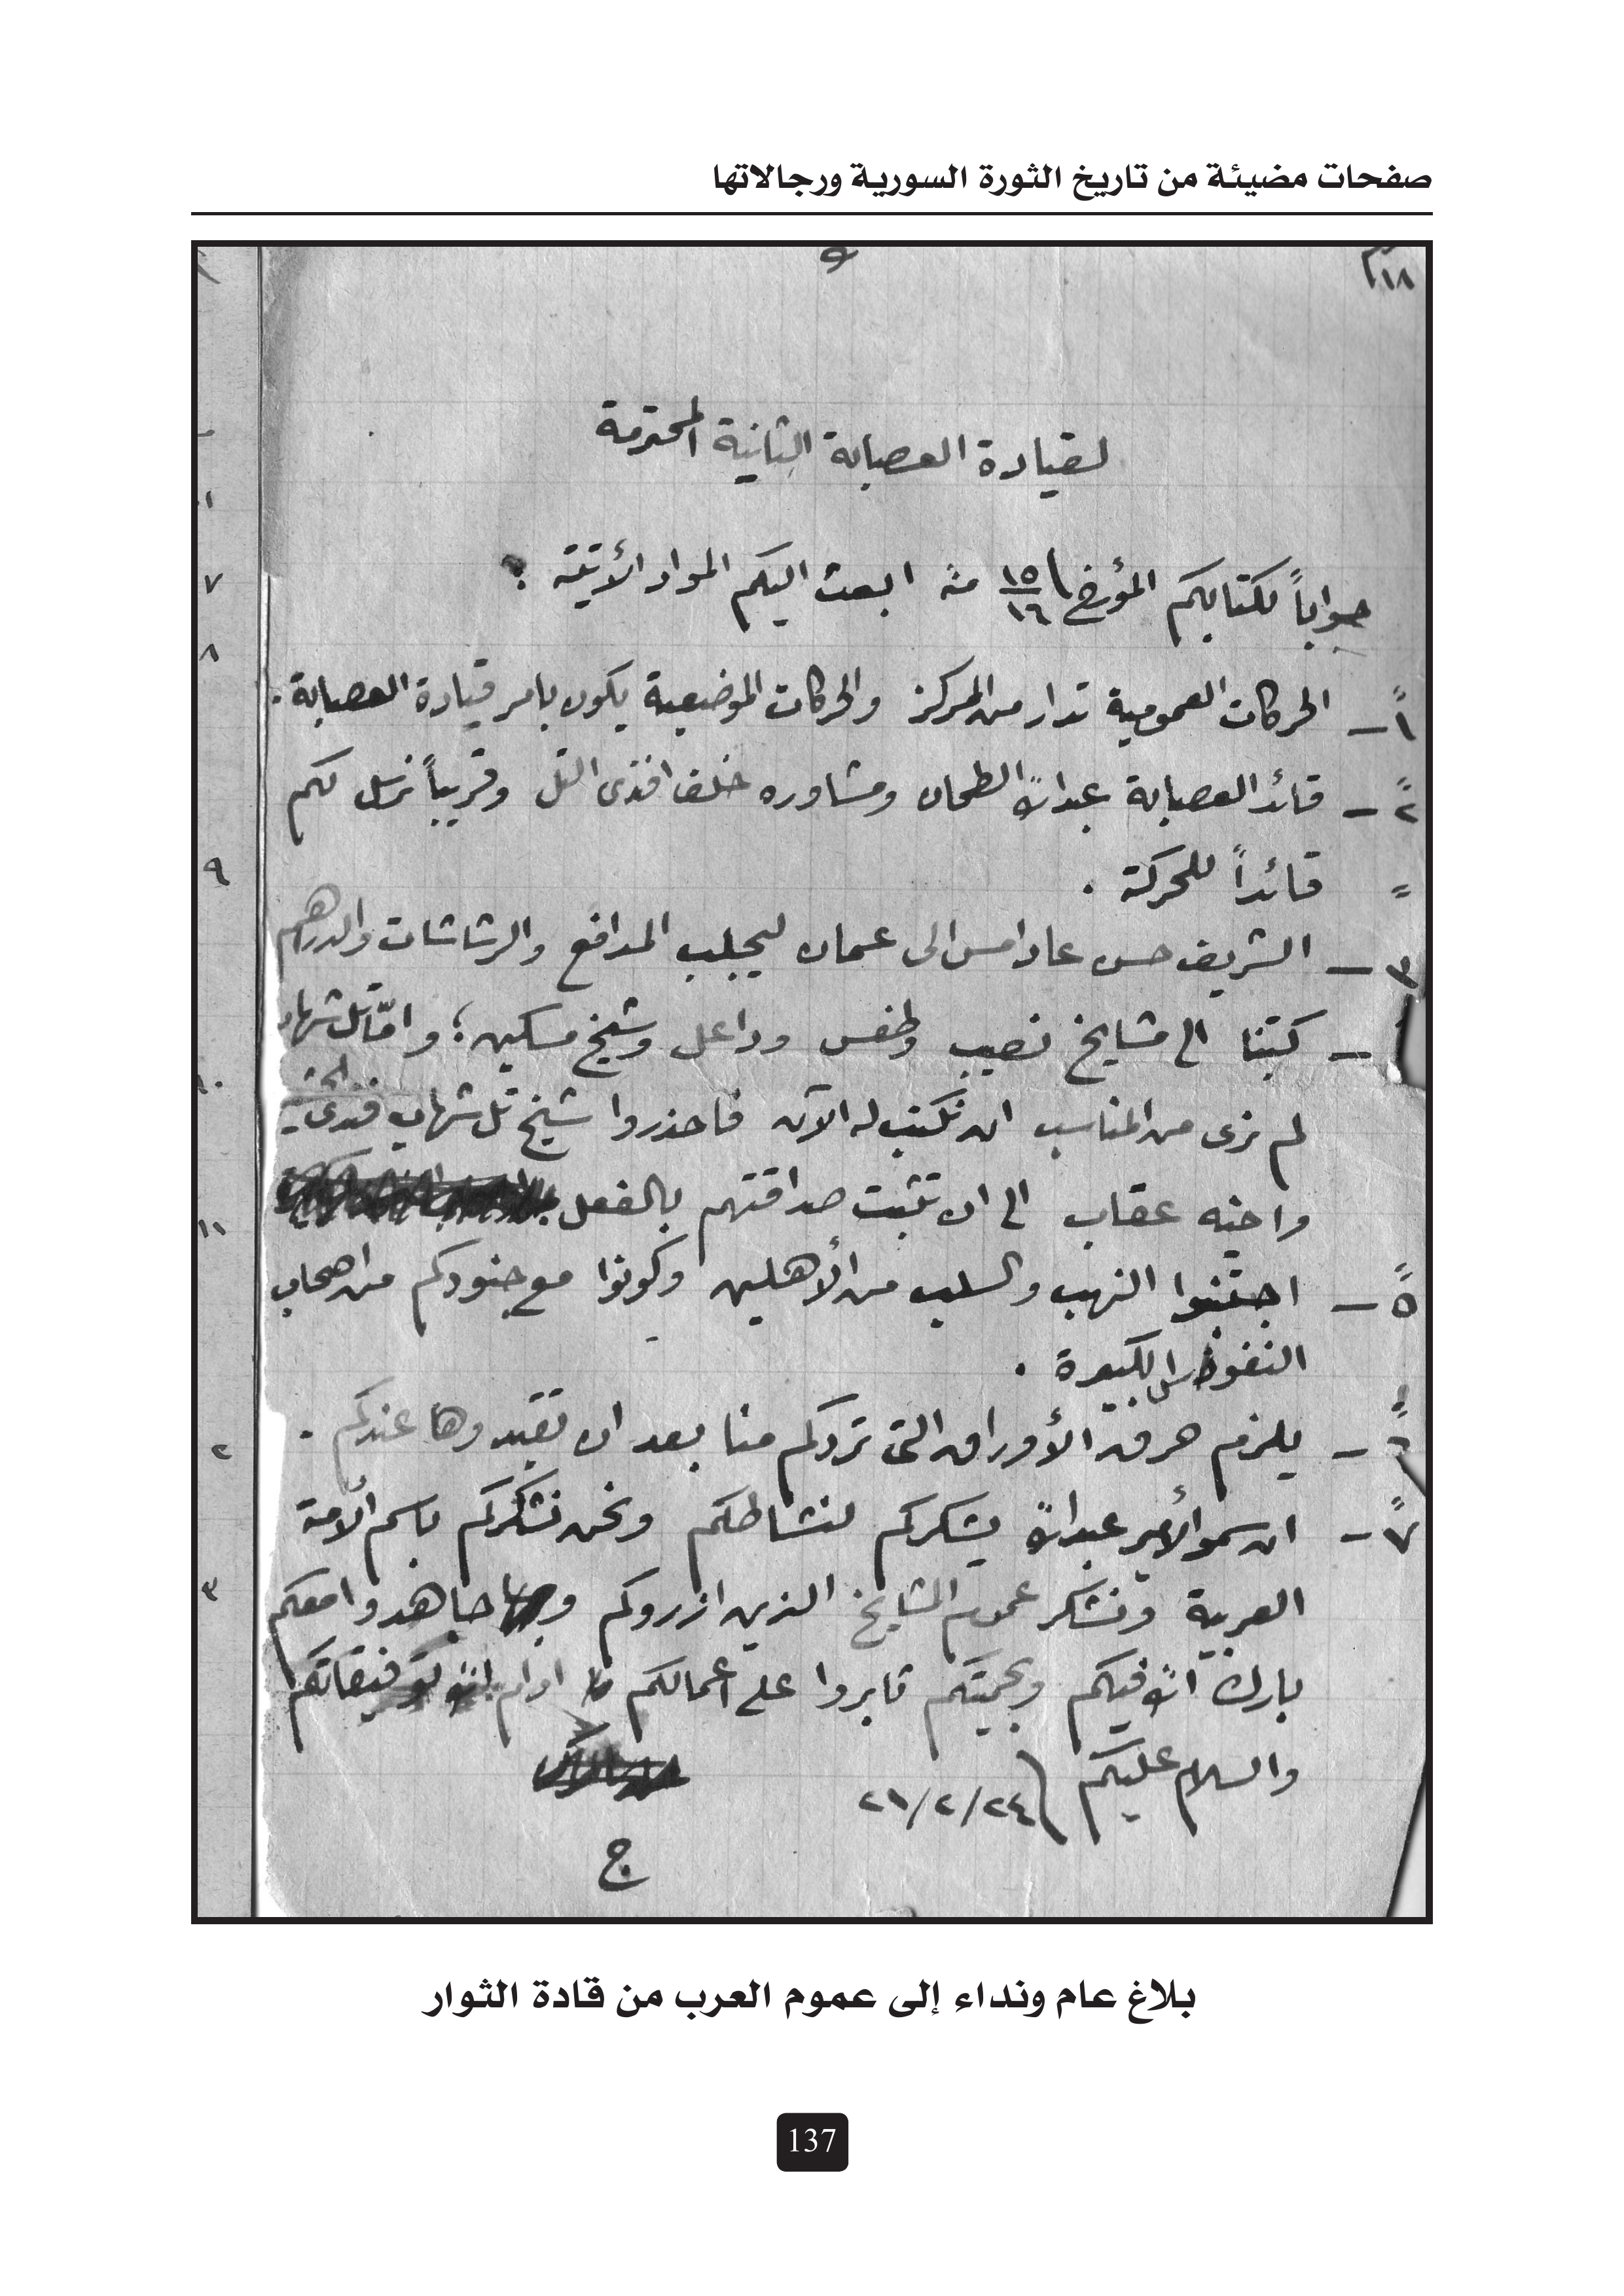 صفحات مضيئة من تاريخ الثورة السورية ورجالاتها
١٨
لقيادة العصابة الثانية المحترمة
جواباً لكتابكم المؤرخ ١٥/١٦ منه ابعث اليكم المواد الأتية :
١ً – الحركات العمومية تدار من المركز والحركات الموضعية يكون بامر قيادة العصابة .
٢ً – قائد العصابة عبدالله الطحان ومشاوره خلف افندى التل وقريباً نرسل لكم
= قائداً للحركة .
٣ – الشريف حسن عاد امس الى عمان ليجلب المدافع والرشاشات والدراهم
– كتبنا الى مشايخ نصيب وطفس وداعل وشيخ مسكين ؛ واما تل شهاب
لم نرى من المناسب ان نكتب له الآن فاحذروا شيخ تل شهاب
واخيه عقاب الى ان تثبت صداقتهم بالفعل
٥ً – اجتنبوا النهب والسلب من الأهلين وكونوا مع جنودكم من اصحاب
النفوس الكبيرة .
٦ً – يلزم حرق الأوراق التى تردكم منا بعد ان تقيدوها عندكم .
٧ً – ان سمو الأمير عبدالله يشكركم لنشاطكم ونحن نشكركم باسم الأمة
العربية ونشكر عموم المشايخ الذين ازروكم و جاهدوا معكم
بارك الله فيكم وبحميتكم ثابروا على اعمالكم ادام الله توفيقاتكم
والسلام عليكم ٢١/٢/٢٤
ج
٧
٨
٩
١٠
١١
٢
٣
بلاغ عام ونداء إلى عموم العرب من قادة الثوار
137